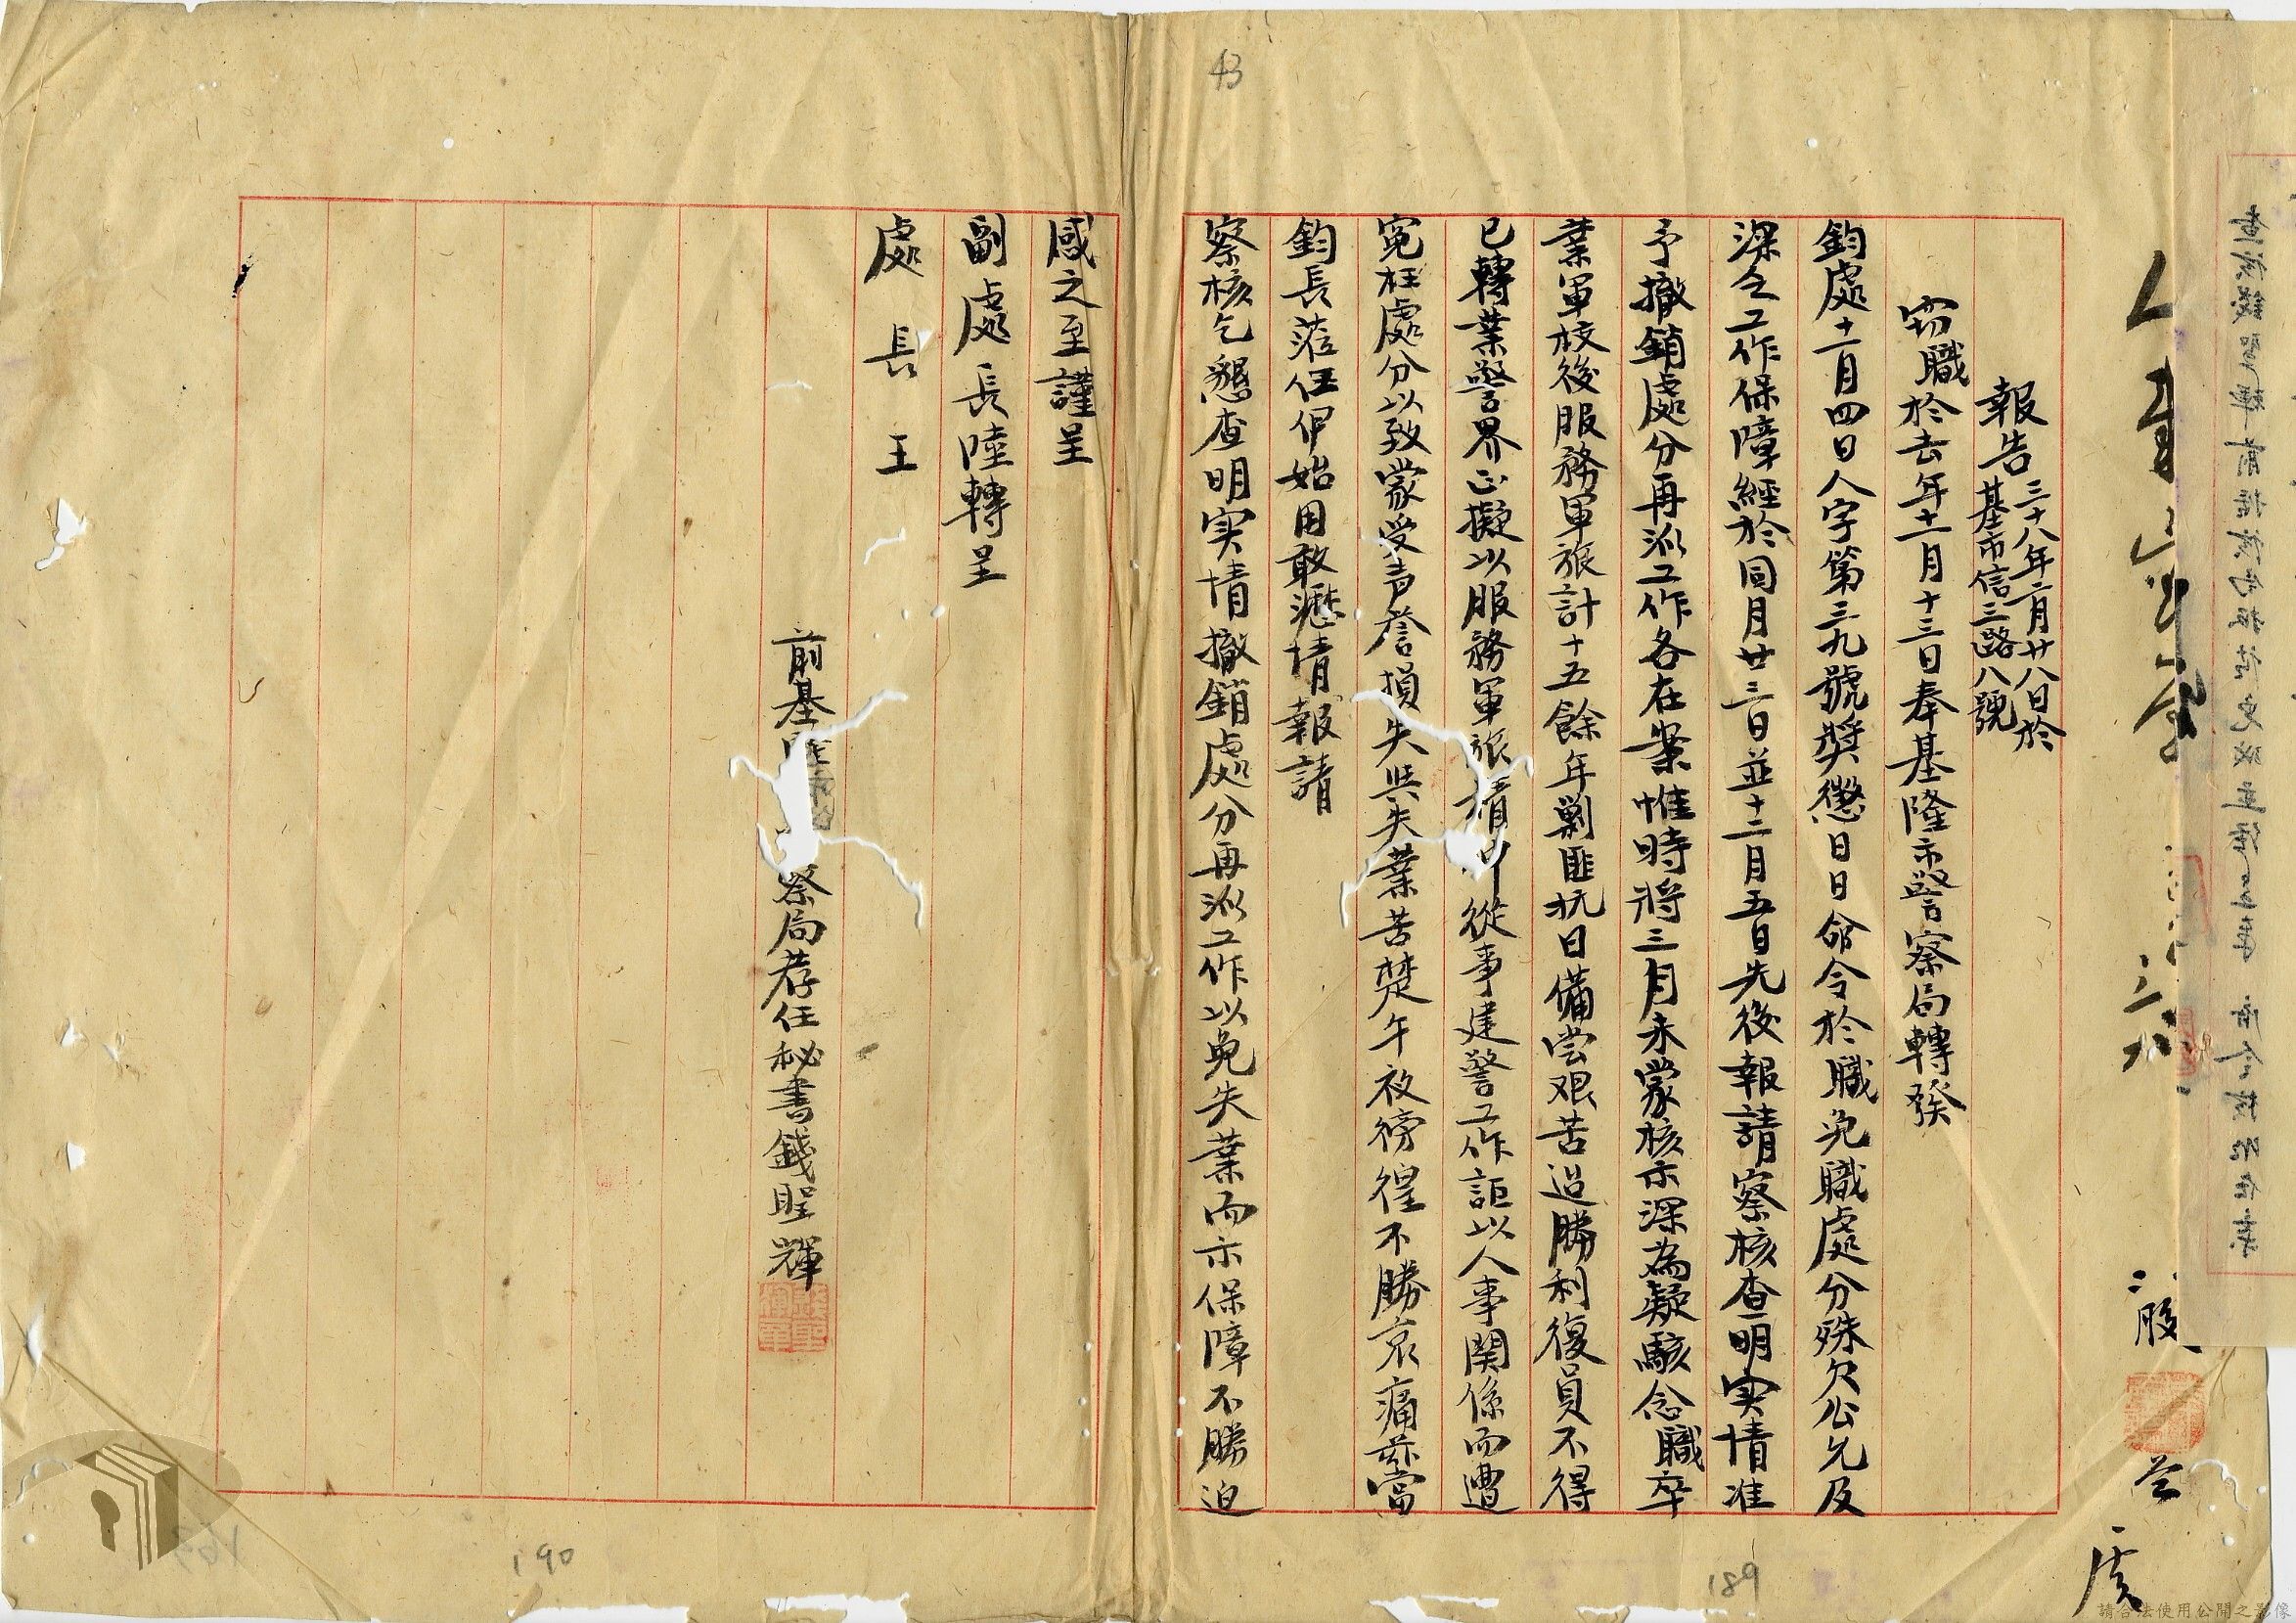 43
報告 三十八年二月廿八日於
基市信三路八號
竊職於去年十一月十三日奉基隆市警察局轉發
鈞處十一月四日人字第三九號獎懲日日命令於職免職處分殊欠公允及
深乏工作保障經於同月廿三日並十二月五日先後報請察核查明实情准
予撤銷處分再派工作各在案惟時將三月未蒙核示深為疑駭念職卒
業軍校後服務軍旅計十五餘年剿匪抗日備尝艰苦迨勝利復員不得
已轉業警界正擬以服務軍旅精神從事建警工作詎以人事関係而遭
冤枉處分以致蒙受声誉損失與失業苦楚午夜徬徨不勝哀痛茲當
鈞長蒞任伊始用敢瀝情報請
察核乞懇查明实情撤銷處分再派工作以免失業而示保障不勝迫
感之至謹呈
副處長陸轉呈
處長王
前基隆市察局荐任秘書錢聖輝
189
190
請合法使用公開之影像